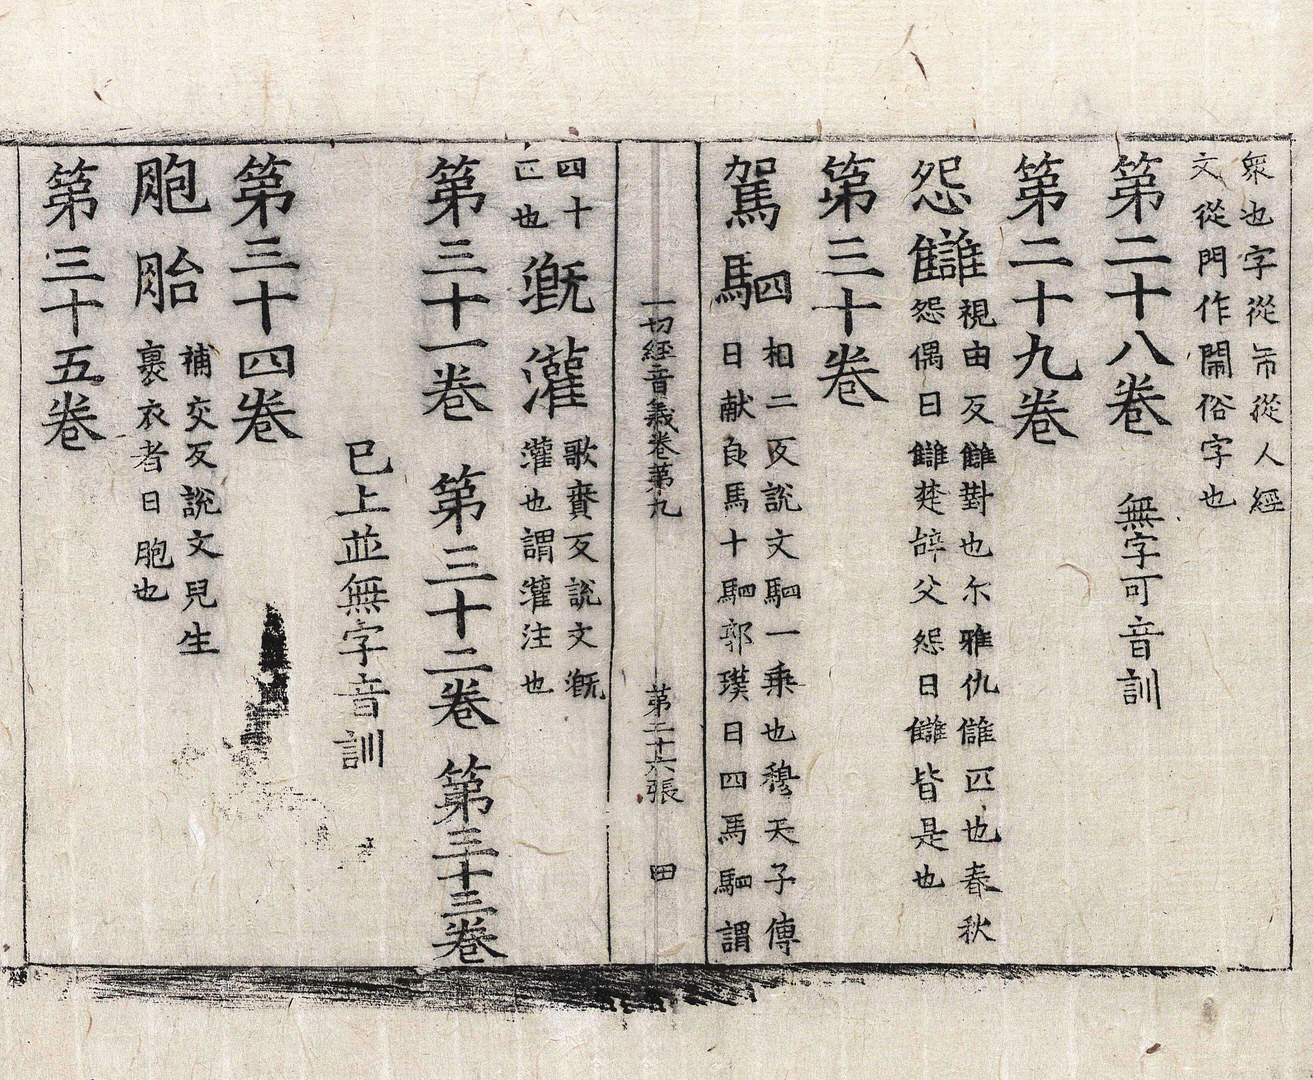 眾也字從市從人經
文從門作閙俗字也
第二十八卷 無字可音訓
第二十九卷
怨讎
視由反讎對也尓雅仇讎匹也春秋
怨偶曰讎楚辞父怨曰讎皆是也
第三十卷
駕駟
相二反說文駟一乗也穆天子傳
曰献良馬十駟郭璞曰四馬駟謂
一切經音義卷第九 第二十六張 田
四十
匹也
溉灌
歌賚反說文溉
灌也謂灌注也
第三十一卷 第三十二卷 第三十三卷
已上並無字音訓
第三十四卷
胞胎
補交反說文兒生
裹衣者曰胞也
第三十五卷